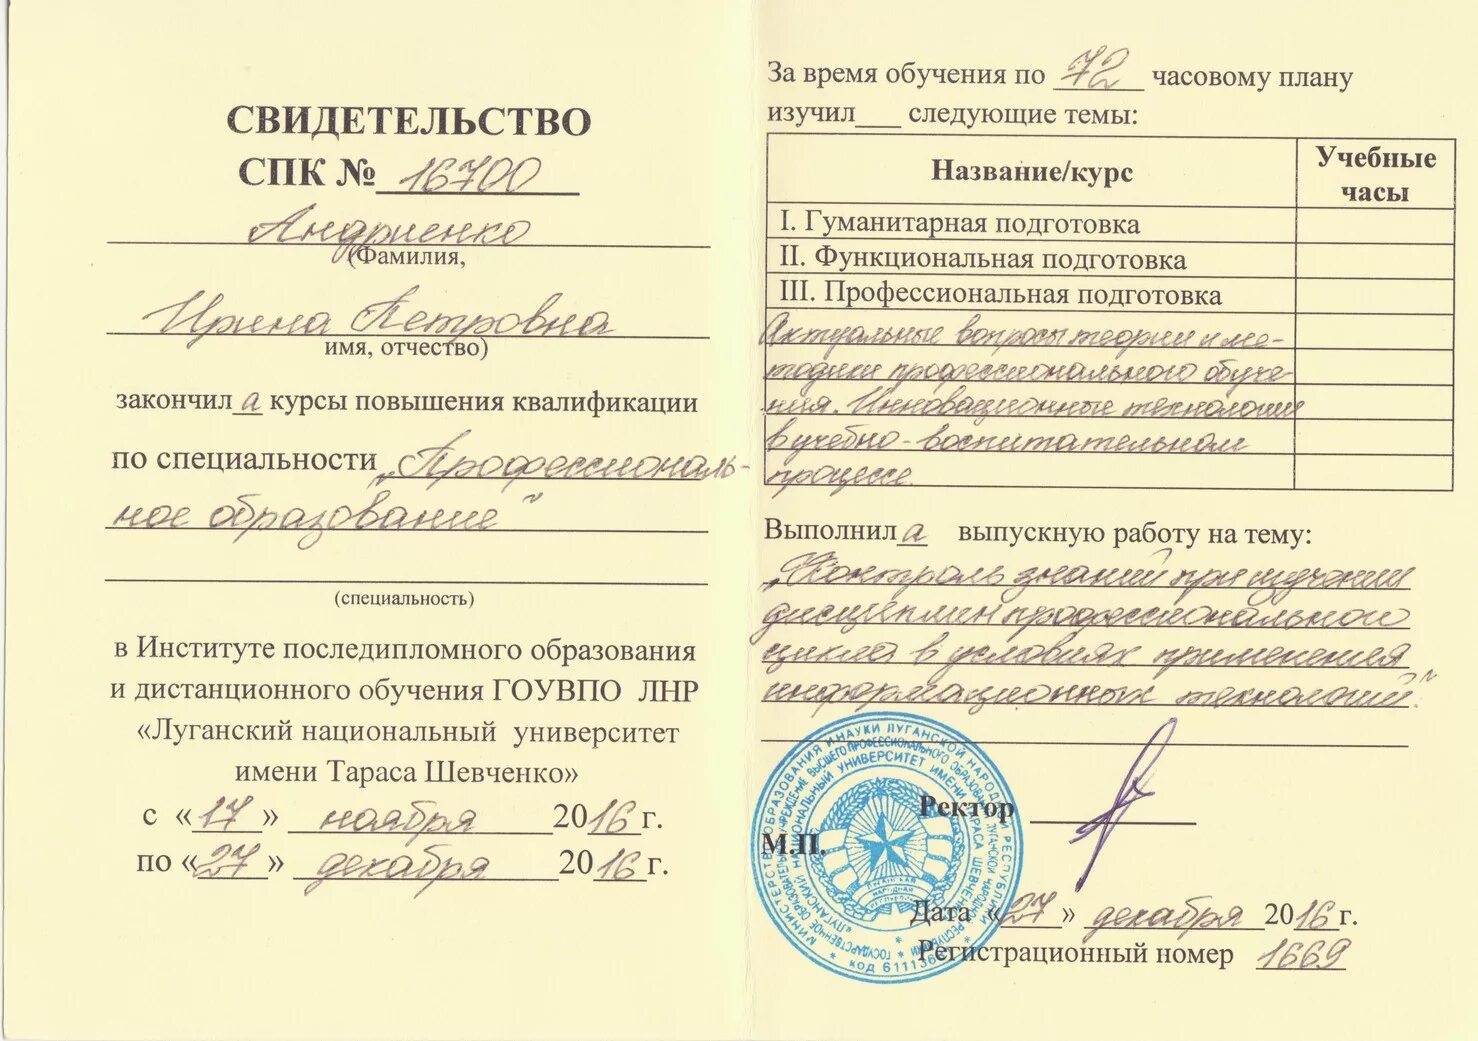 СВИДЕТЕЛЬСТВО
СПК № 16700
Андриенко
(Фамилия,
Ирина Петровна
имя, отчество)
закончил а курсы повышения квалификации
по специальности „Профессиональ-
ное образование"
(специальность)
в Институте последипломного образования
и дистанционного обучения ГОУВПО ЛНР
«Луганский национальный университет
имени Тараса Шевченко»
с «17» ноября 2016 г.
по «27» декабря 2016 г.
За время обучения по 72 часовому плану
изучил___ следующие темы:
Название/курс
Учебные
часы
I. Гуманитарная подготовка
II. Функциональная подготовка
III. Профессиональная подготовка
Актуальные вопросы теории и ме-
тодики профессионального обуче-
ния. Инновационные технологии
в учебно-воспитательном
процессе.
Выполнил а выпускную работу на тему:
„Контроль знаний при изучении
дисциплин профессионального
цикла в условиях применения
информационных технологий"
Ректор
М.П.
МИНИСТЕРСТВО ОБРАЗОВАНИЯ И НАУКИ ЛУГАНСКОЙ НАРОДНОЙ РЕСПУБЛИКИ
код 611136
Дата «27» декабря 2016 г.
Регистрационный номер 1669